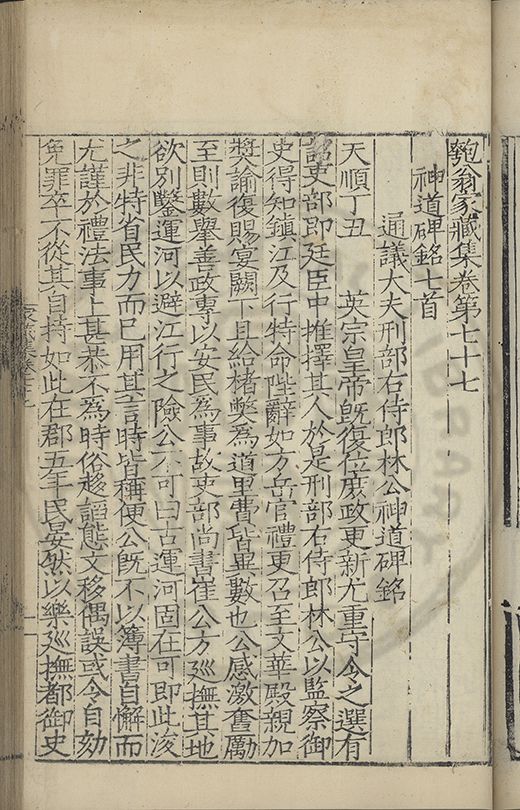 匏翁家藏集卷第七十七
神道碑銘七首
通議大夫刑部右侍郎林公神道碑銘
天順丁丑 英宗皇帝既復位庶政更新尤重守令之選有
詔吏部即廷臣中推擇其人於是刑部右侍郎林公以監察御
史得知鎮江及行特命陛辭如方岳官禮更召至文華殿親加
奬諭復賜宴闕下且給楮幣為道里費皆異數也公感激奮勵
至則數舉善政專以安民為事故吏部尚書崔公方廵撫其地
欲別鑿運河以避江行之險公不可曰古運河固在可即此浚
之非特省民力而已用其言時皆稱便公既不以簿書自懈而
尤謹於禮法事上甚恭不為時俗趍謟態文移偶誤或令自劾
免罪卒不從其自持如此在郡五年民晏然以樂廵撫都御史